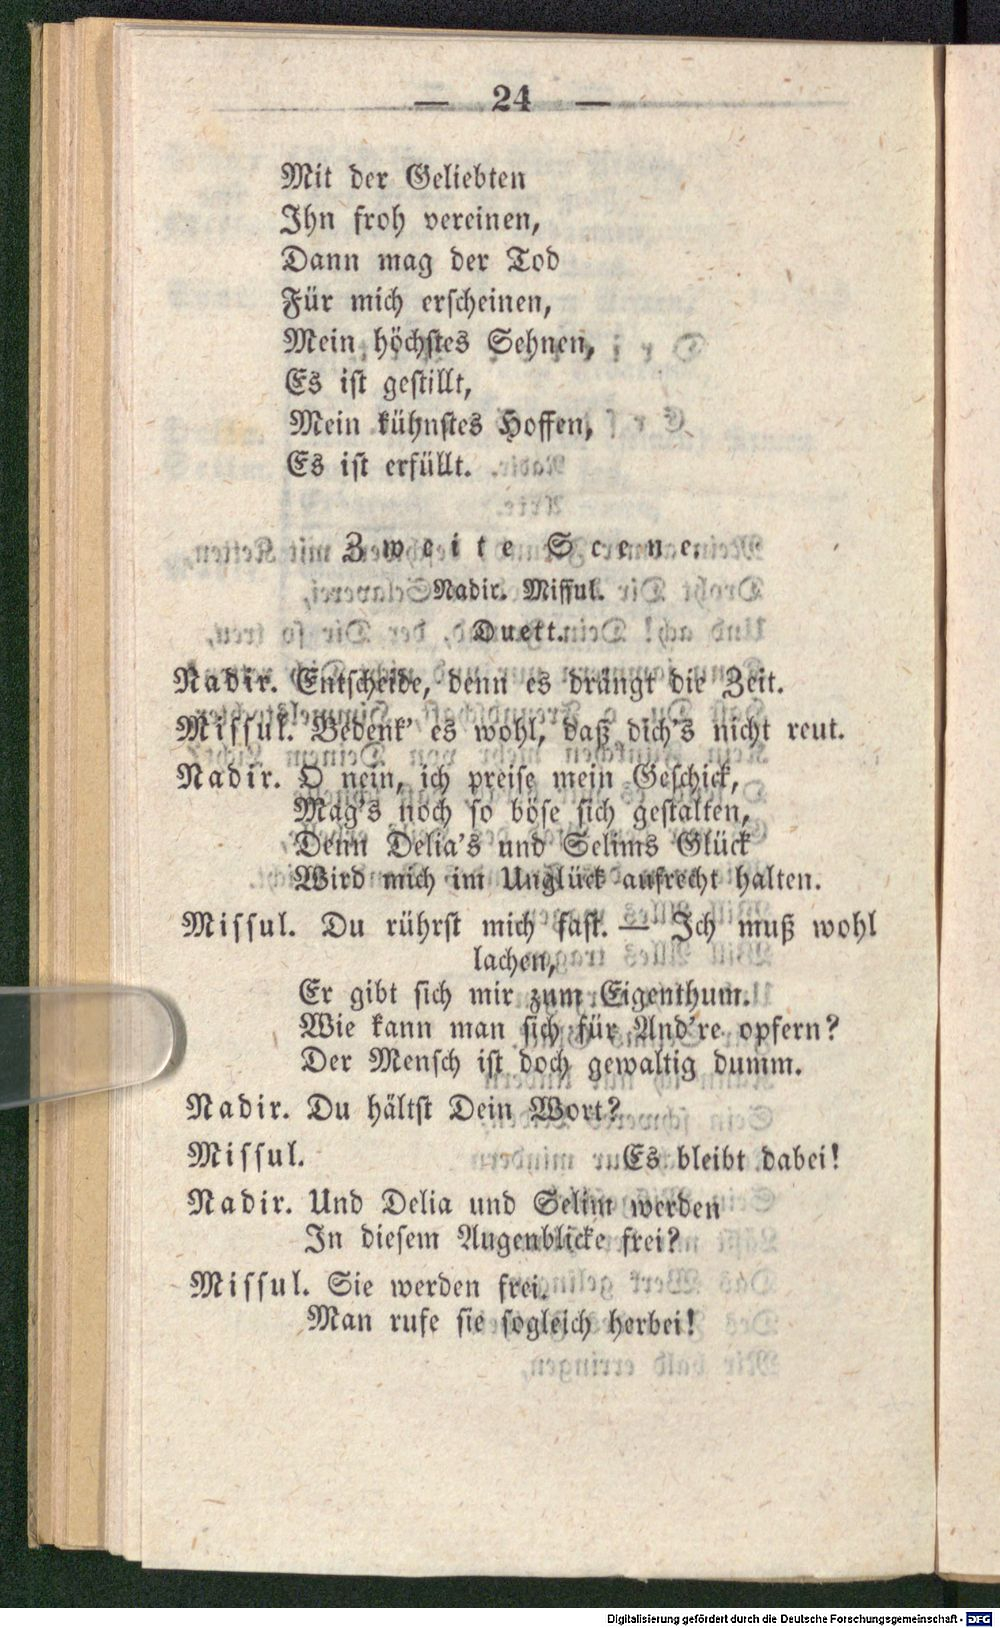 — 24 —
Mit der Geliebten
Ihn froh vereinen,
Dann mag der Tod
Für mich erscheinen,
Mein höchstes Sehnen,
Es ist gestillt,
Mein kühnstes Hoffen,
Es ist erfüllt.
Zweite Scene.
Nadir. Missul.
Duett.
Nadir. Entscheide, denn es drängt die Zeit.
Missul. Bedenk' es wohl, daß dich's nicht reut.
Nadir. O nein, ich preise mein Geschick,
Mag's noch so böse sich gestalten,
Denn Delia's und Selims Glück
Wird mich im Unglück aufrecht halten.
Missul. Du rührst mich fast. — Ich muß wohl
lachen,
Er gibt sich mir zum Eigenthum.
Wie kann man sich für And're opfern?
Der Mensch ist doch gewaltig dumm.
Nadir. Du hältst Dein Wort?
Missul. Es bleibt dabei!
Nadir. Und Delia und Selim werden
In diesem Augenblicke frei?
Missul. Sie werden frei.
Man rufe sie sogleich herbei!
Digitalisierung gefördert durch die Deutsche Forschungsgemeinschaft - DFG